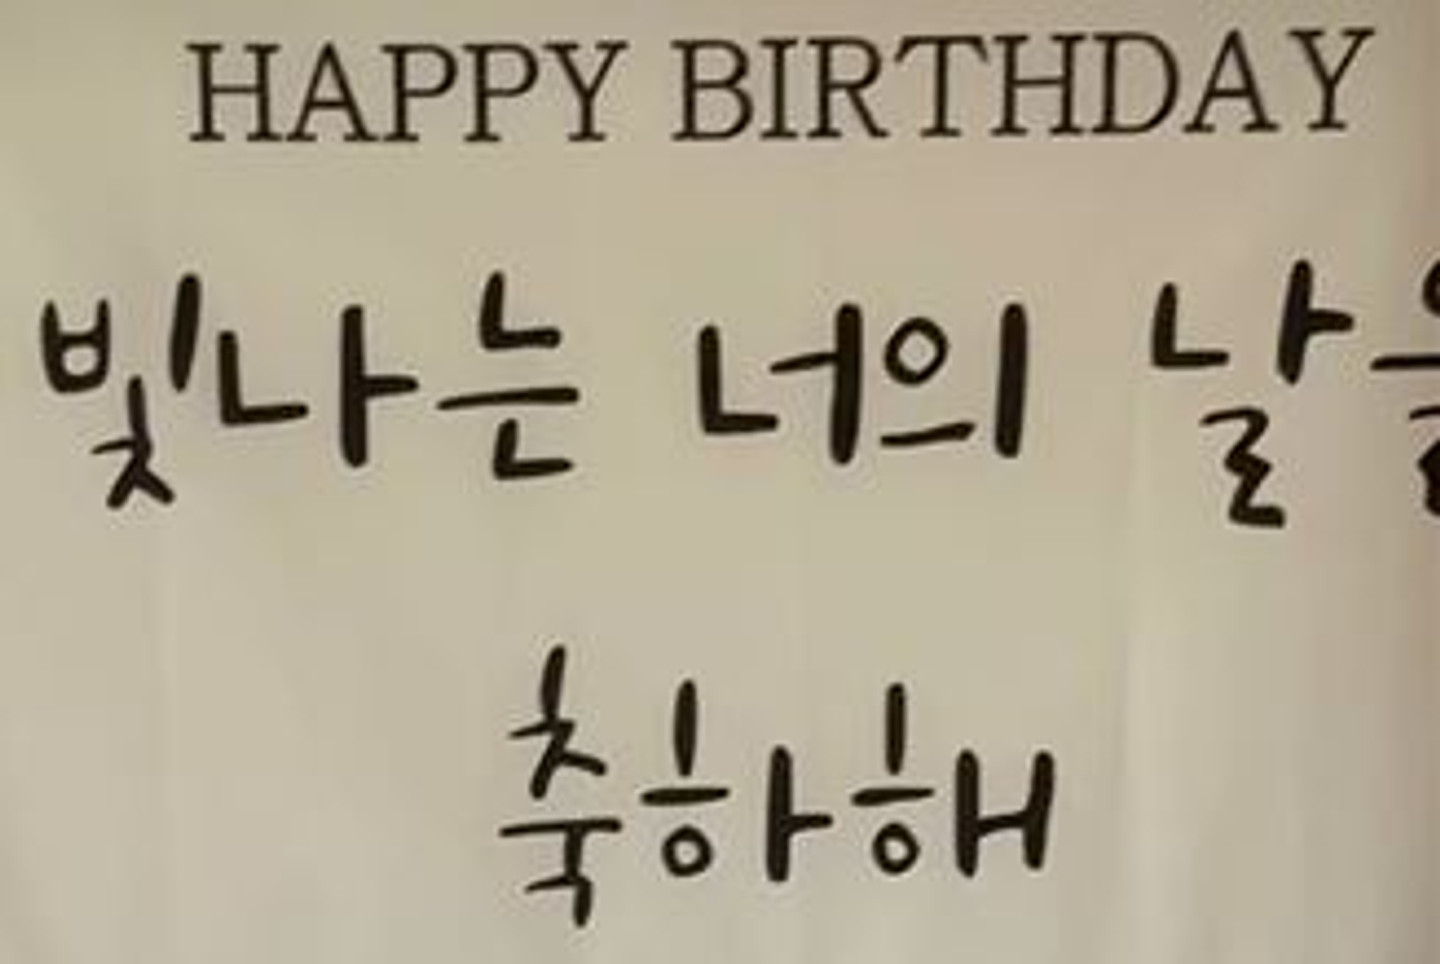 HAPPY BIRTHDAY
빛나는 너의 날을
축하해